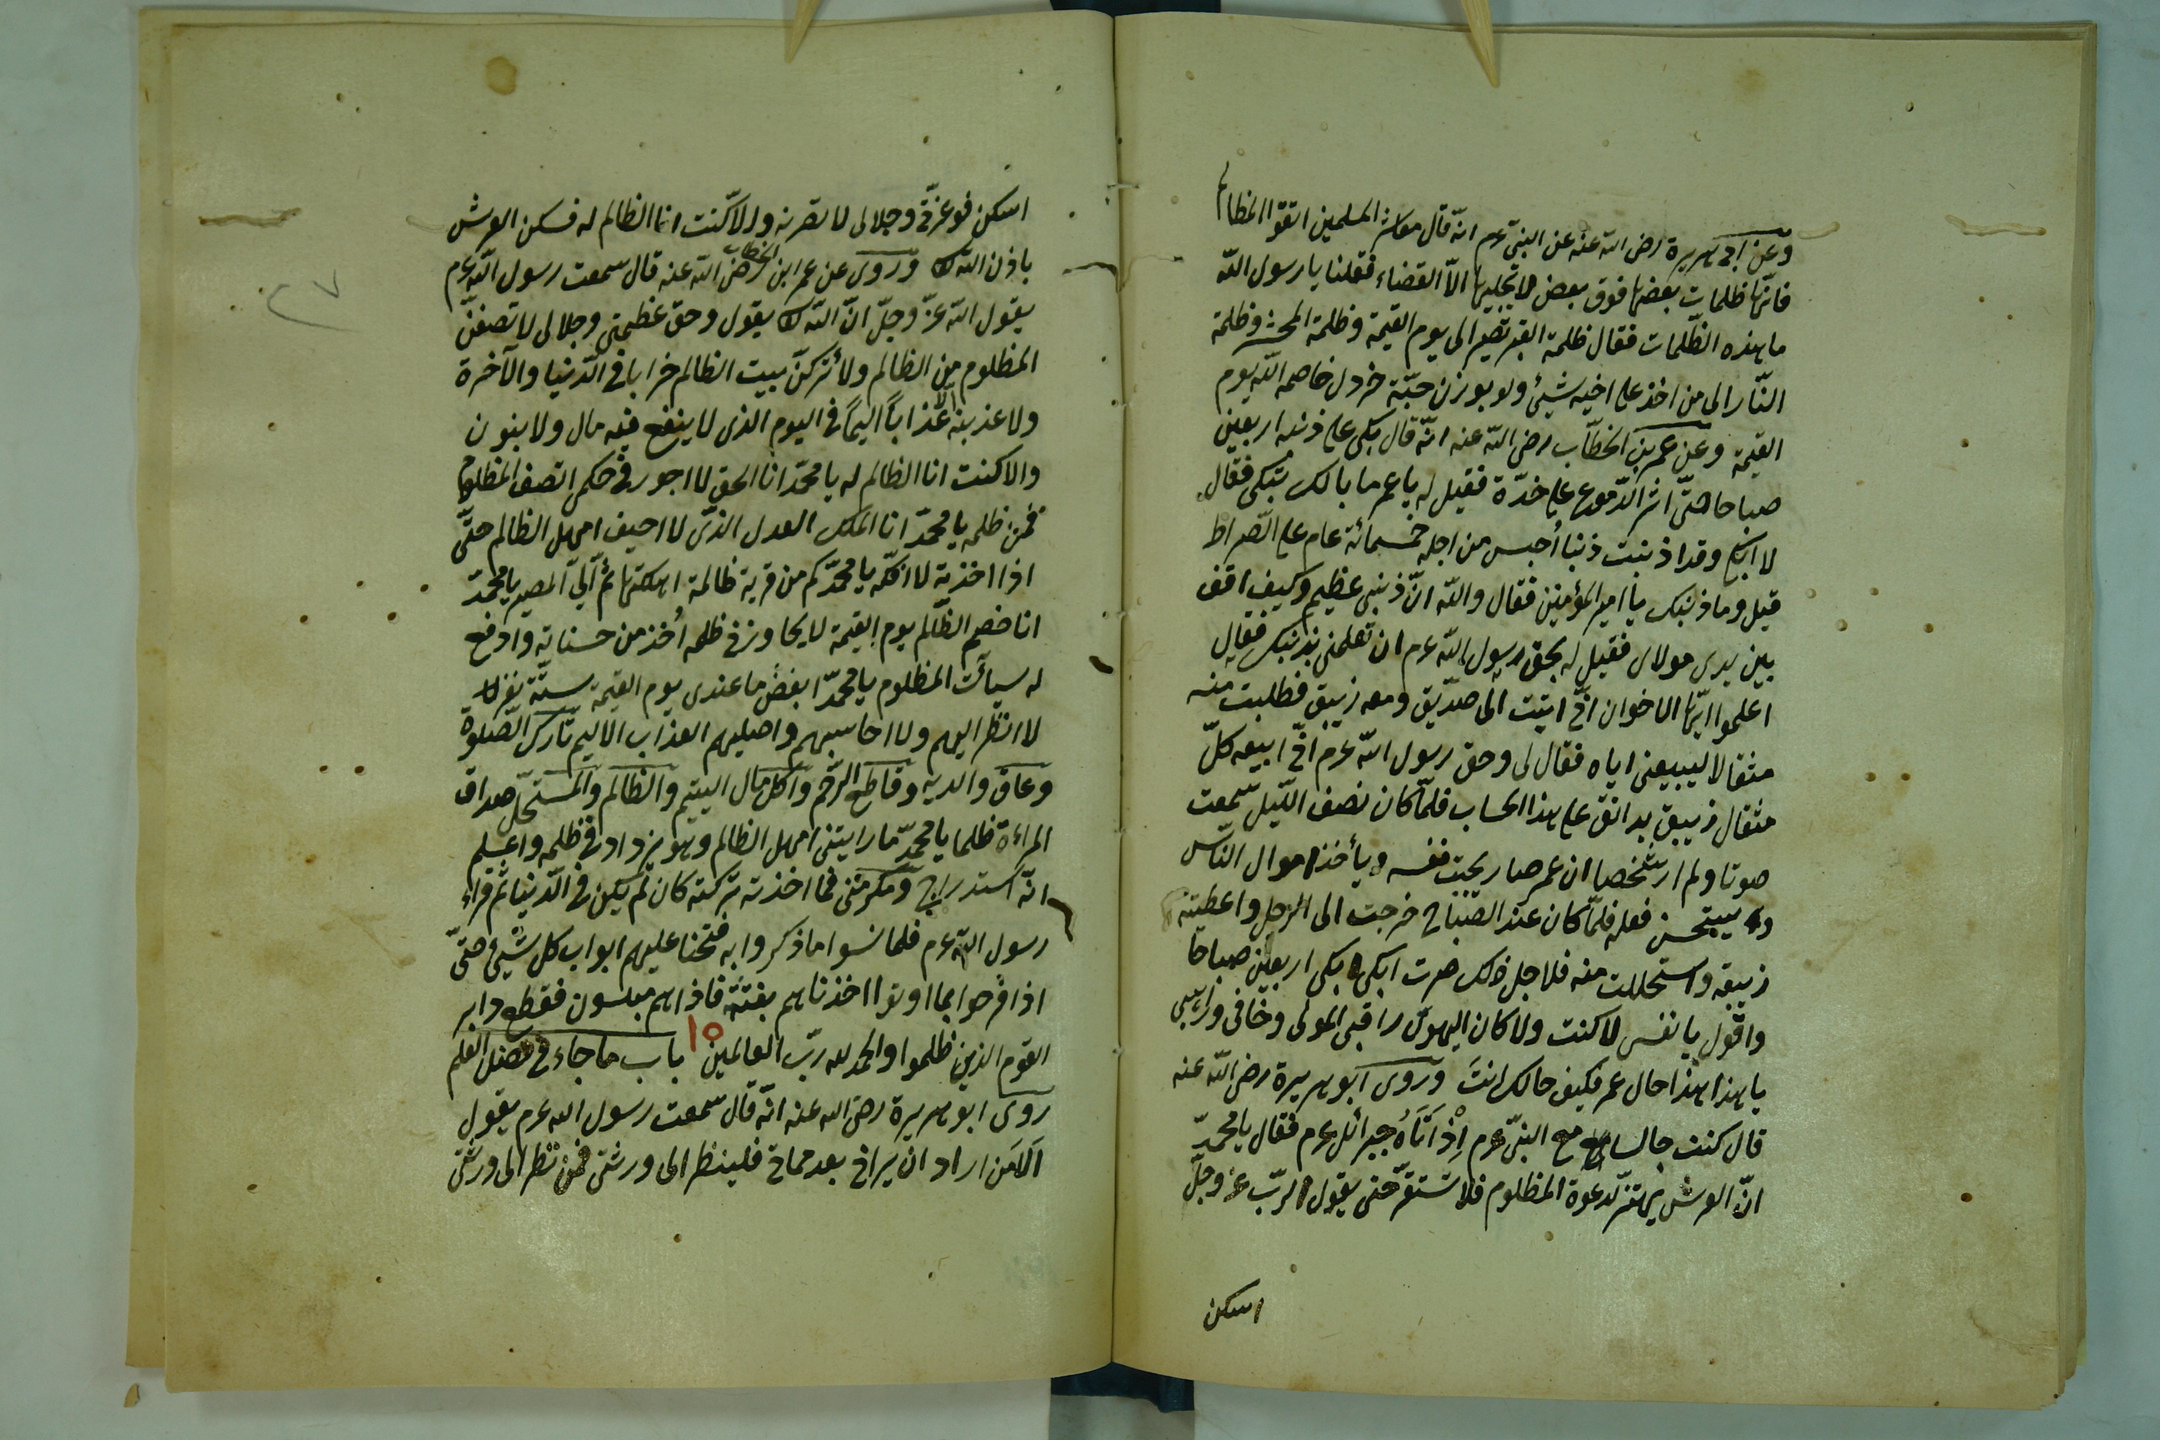 وعن ابى هريرة رضى الله عنه عن النبى عم انه قال معاشر المسلمين اتقوا المظالم
فانها ظلمات بعضها فوق بعض لا تجليها الا القضاء فقلنا يا رسول الله
ما هذه الظلمات فقال ظلمة القبر تصير الى يوم القيمة وظلمة المحشر وظلمة
النار الى من اخذ على اخيه شيئ ولو بوزن حبة خردل خاصمه الله يوم
القيمة وعن عمر بن الخطاب رضى الله عنه انه قال بكى على ذنبه اربعين
صباحا حتى اثر الدموع على خده فقيل له يا عمر ما بالك تبكى فقال
لا ابكى وقد اذنبت ذنبا أحبس من اجله خمسمائة عام على الصراط
قيل وما ذنبك يا امير المؤمنين فقال والله ان ذنبى عظيم وكيف اقف
بين يدى مولاى فقيل له بحق رسول الله عم ان تعلمنى بذنبك فقال
اعلموا ايها الاخوان انى اتيت الى صديق ومعه زيبق فطلبت منه
مثقالا ليبيعنى اياه فقال لى وحق رسول الله عم انى ابيعه كل
مثقال زيبق بدانق على هذا الحساب فلما كان نصف الليل سمعت
صوتا ولم ار شخصا ان عمر صار يحب نفسه ويأخذ اموال الناس
ويستحسن فعله فلما كان عند الصباح خرجت الى الرجل واعطيته
زيبقه واستحللت منه فلاجل ذلك صرت ابكى بكى اربعين صباحا
واقول يا نفس لا كنت ولا كان الهوى راقبى المولى وخافى
يا هذا هذا حال عمر فكيف حالك انت وروى ابو هريرة رضى الله عنه
قال كنت جالسا مع النبى عم إذ اتاه جبرائل عم فقال يا محمد
ان العرش يهتز لدعوة المظلوم فلا تستقر حتى يقول الرب عز وجل
اسكن
اسكن فوعزتى وجلالى لانصرنه والا كنت انا الظالم له فسكن العرش
باذن الله وروى عن عمر ابن الخطاب رضى الله عنه قال سمعت رسول الله عم
يقول الله عز وجل ان الله يقول وحق عظمتى وجلالى لانصفن
المظلوم من الظالم ولأتركن بيت الظالم خرابا فى الدنيا والآخرة
ولاعذبنه عذابا اليما فى اليوم الذى لا ينفع فيه مال ولا بنون
والا كنت انا الظالم له يا محمد انا الحق لا اجور فى حكمى انصف المظلوم
ممن ظلمه يا محمد انا الملك العدل الذى لا احيف امهل الظالم حتى
اذا اخذته لا افكه يا محمد كم من قرية ظالمة اهلكتها ثم الى المصير يا محمد
انا خصم الظالم يوم القيمة لا يجاوزنى ظلمه أخذ من حسناته وادفع
له سيأت المظلوم يا محمد ابغض ما عندى يوم القيمة ستة نفر
لا انظر اليهم ولا احاسبهم واصليهم العذاب الاليم تارك الصلوة
وعاق والديه وقاطع الرحم وآكل مال اليتيم والظالم والمستحل صداق
المراءة ظلما يا محمد ما رايتنى امهل الظالم وهو يزداد فى ظلمه واعلم
انه استدراج ومكر منى فما اخذته تركته كان لم يكن فى الدنيا ثم قراء
رسول الله عم فلما نسوا ما ذكروا به فتحنا عليهم ابواب كل شيئ حتى
اذا فرحوا بما اوتوا اخذناهم بغتة فاذا هم مبلسون فقطع دابر
القوم الذين ظلموا والحمد لله رب العالمين ١٥ باب ما جاء فى فضل العلم
روى ابو هريرة رضى الله عنه انه قال سمعت رسول الله عم يقول
الا من اراد ان يرانى بعد مماتى فلينظر الى ورثتى فمن نظر الى ورثتى